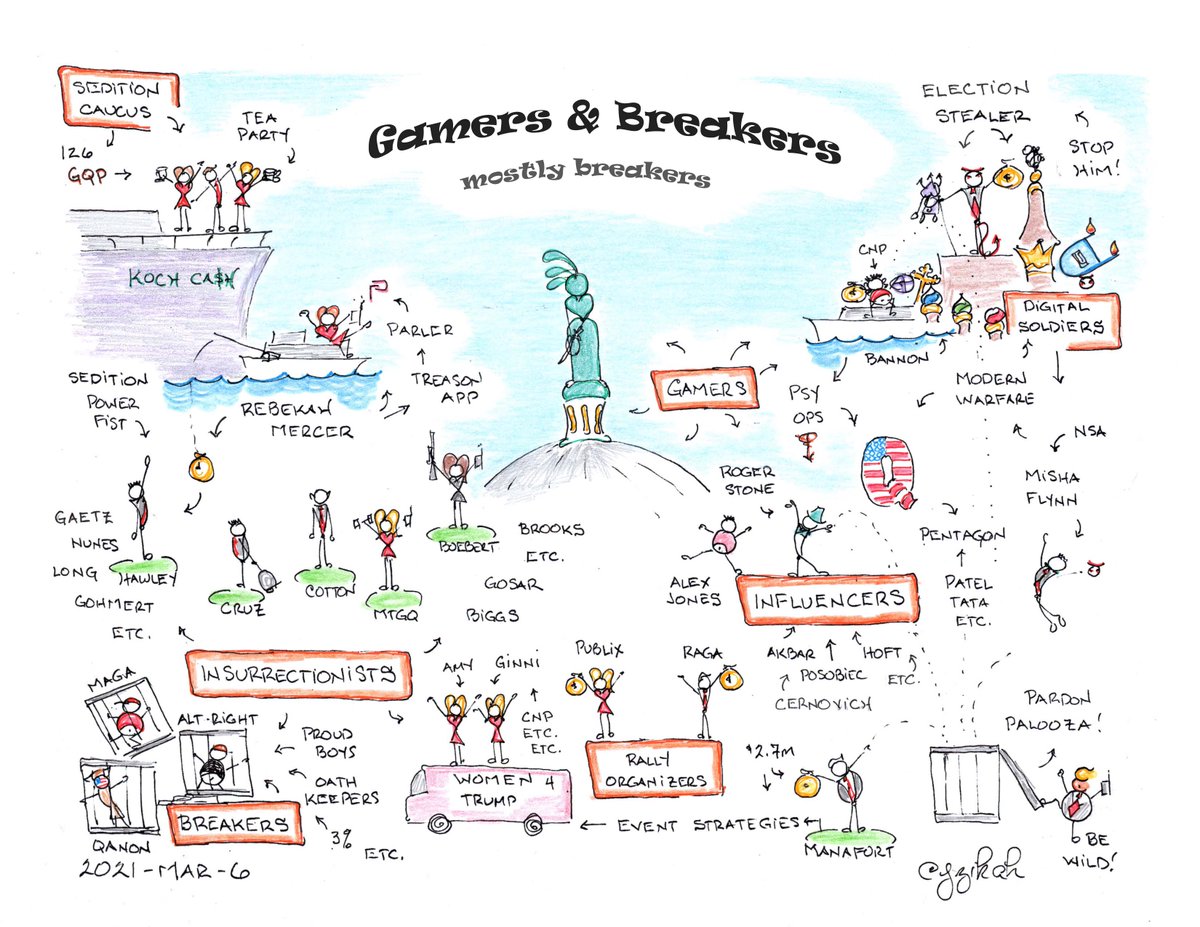 Gamers & Breakers
mostly breakers
SEDITION
CAUCUS
TEA
PARTY
126
GQP
KOCH CA$H
PARLER
TREASON
APP
REBEKAH
MERCER
SEDITION
POWER
FIST
ELECTION
STEALER
STOP
HIM!
CNP
DIGITAL
SOLDIERS
BANNON
MODERN
WARFARE
GAMERS
PSY
OPS
Q
NSA
MISHA
FLYNN
PENTAGON
PATEL
TATA
ETC.
ROGER
STONE
ALEX
JONES
INFLUENCERS
AKBAR
HOFT
POSOBIEC
ETC.
CERNOVICH
GAETZ
NUNES
LONG
HAWLEY
GOHMERT
ETC.
CRUZ
COTTON
MTGQ
BOEBERT
BROOKS
ETC.
GOSAR
BIGGS
INSURRECTIONISTS
MAGA
ALT-RIGHT
PROUD
BOYS
OATH
KEEPERS
3%
ETC.
BREAKERS
QANON
AMY
GINNI
CNP
ETC.
ETC.
WOMEN 4
TRUMP
PUBLIX
RAGA
RALLY
ORGANIZERS
$2.7M
EVENT STRATEGIES
MANAFORT
PARDON
PALOOZA!
BE
WILD!
2021-MAR-6
@yzikah